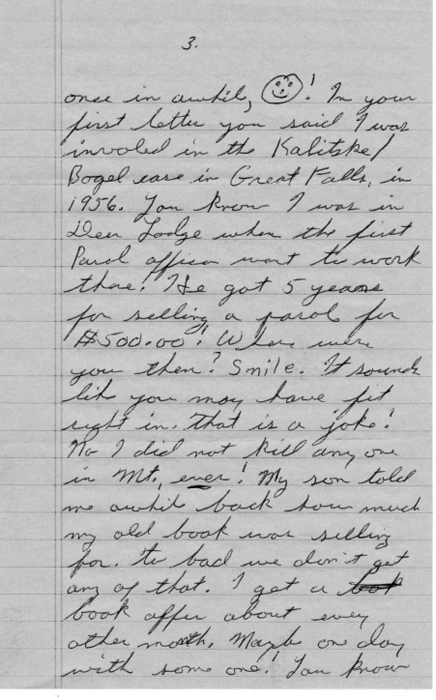 3.
once in awhil, ! In your
first letter you said I was
involed in the Kalitske/
Bogel case in Great Falls, in
1956. You know I was in
Deer Lodge when the first
Parol officer want to work
there! He got 5 years
for selling a parol for
$500.00! Where were
you then? Smile. It sounds
lik you may have fit
right in. That is a joke!
No I did not kill any one
in Mt., ever! My son told
me awhil back how much
my old book was selling
for. to bad we don't get
any of that. I get a
book offer about every
other month. Mayb on day
with some one! You know